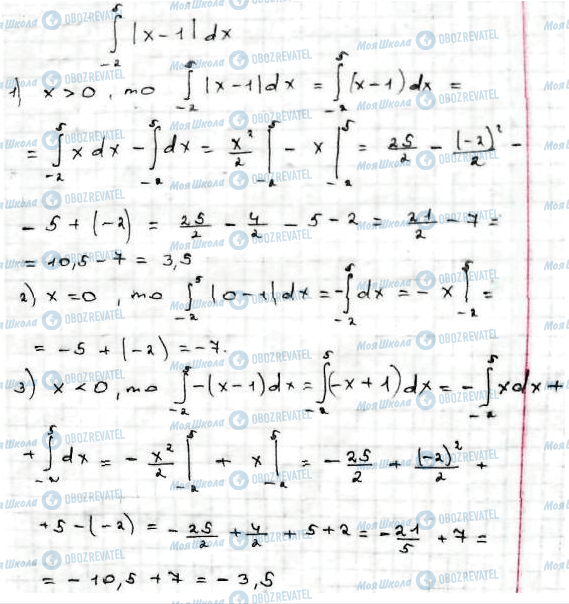 ∫₋₂⁵ |x-1| dx
1) x > 0, то ∫₋₂⁵ |x-1| dx = ∫₋₂⁵ (x-1) dx =
= ∫₋₂⁵ x dx - ∫₋₂⁵ dx = x²/2 |₋₂⁵ - x |₋₂⁵ = 25/2 - (-2)²/2 -
- 5 + (-2) = 25/2 - 4/2 - 5 - 2 = 21/2 - 7 =
= 10,5 - 7 = 3,5
2) x = 0, то ∫₋₂⁵ |0-1| dx = -∫₋₂⁵ dx = - x |₋₂⁵ =
= -5 + (-2) = -7.
3) x < 0, то ∫₋₂⁵ -(x-1) dx = ∫₋₂⁵ (-x+1) dx = -∫₋₂⁵ x dx +
+ ∫₋₂⁵ dx = - x²/2 |₋₂⁵ + x |₋₂⁵ = - 25/2 + (-2)²/2 +
+5 - (-2) = - 25/2 + 4/2 + 5 + 2 = - 21/5 + 7 =
= - 10,5 + 7 = - 3,5
Моя Школа OBOZREVATEL